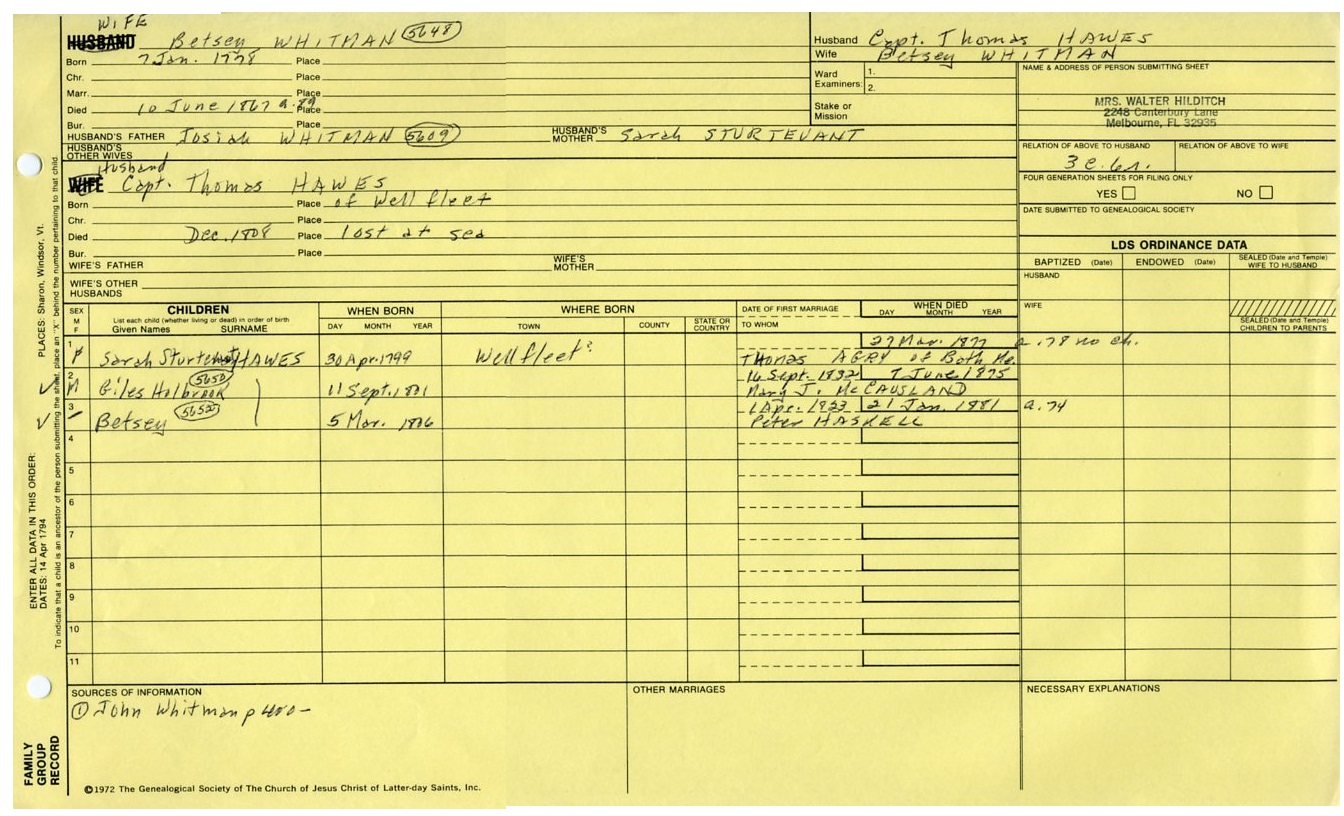 WIFE
HUSBAND Betsey WHITMAN (5648)
Born 7 Jan. 1778 Place
Chr. Place
Marr. Place
Died 10 June 1867 a.89 Place
Bur.
HUSBAND'S FATHER Josiah WHITMAN (5609) HUSBAND'S MOTHER Sarah STURTEVANT
HUSBAND'S OTHER WIVES
Husband
WIFE Capt. Thomas HAWES
Born Place of Wellfleet
Chr. Place
Died Dec. 1808 Place lost at sea
Bur. Place
WIFE'S FATHER WIFE'S MOTHER
WIFE'S OTHER HUSBANDS
Husband Capt. Thomas HAWES
Wife Betsey WHITMAN
Ward Examiners: 1. 2.
Stake or Mission
NAME & ADDRESS OF PERSON SUBMITTING SHEET
MRS. WALTER HILDITCH
2248 Canterbury Lane
Melbourne, FL 32935
RELATION OF ABOVE TO HUSBAND RELATION OF ABOVE TO WIFE
3 c. 6r.
FOUR GENERATION SHEETS FOR FILING ONLY
YES NO
DATE SUBMITTED TO GENEALOGICAL SOCIETY
LDS ORDINANCE DATA
BAPTIZED (Date) ENDOWED (Date) SEALED (Date and Temple) WIFE TO HUSBAND
HUSBAND
WIFE
SEALED (Date and Temple) CHILDREN TO PARENTS
SEX M F
CHILDREN
List each child (whether living or dead) in order of birth
Given Names SURNAME
WHEN BORN
DAY MONTH YEAR
WHERE BORN
TOWN COUNTY STATE OR COUNTRY
DATE OF FIRST MARRIAGE
TO WHOM
WHEN DIED
DAY MONTH YEAR
1 F Sarah Sturtevant HAWES 30 Apr. 1799 Wellfleet? 27 Mar. 1877 a. 78 no ch.
Thomas AGRY of Bath Me.
2 M Giles Holbrook (5650) 11 Sept. 1801 16 Sept. 1832 7 June 1875
Mary J. McCAUSLAND
3 Betsey (5652) 5 Mar. 1806 1 Apr. 1833 21 Jan. 1881 a. 74
Peter HASKELL
4
5
6
7
8
9
10
11
SOURCES OF INFORMATION
① John Whitman p 480-
OTHER MARRIAGES
NECESSARY EXPLANATIONS
©1972 The Genealogical Society of The Church of Jesus Christ of Latter-day Saints, Inc.
FAMILY GROUP RECORD
ENTER ALL DATA IN THIS ORDER:
DATES: 14 Apr 1794
PLACES: Sharon, Windsor, Vt.
To indicate that a child is an ancestor of the person submitting the sheet, place an "X" behind the number pertaining to that child.